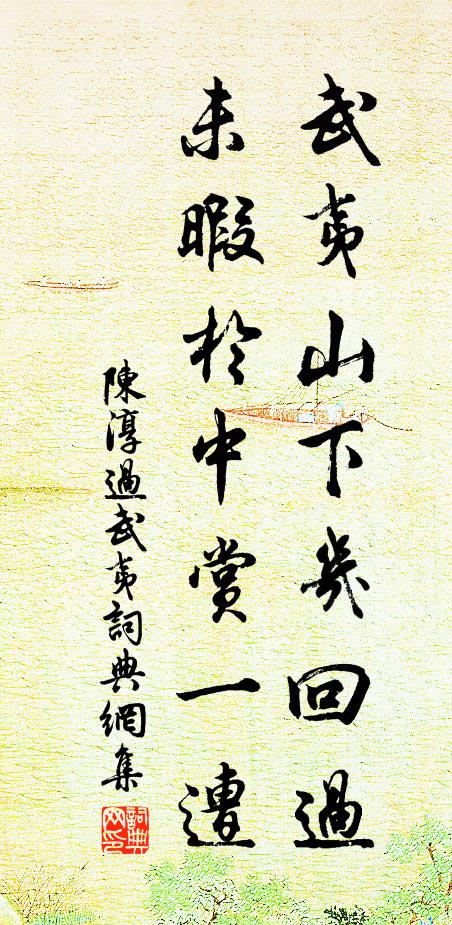 武夷山下幾回過
未暇於中賞一遭
陳淳過武夷詞典網集
詞典網印